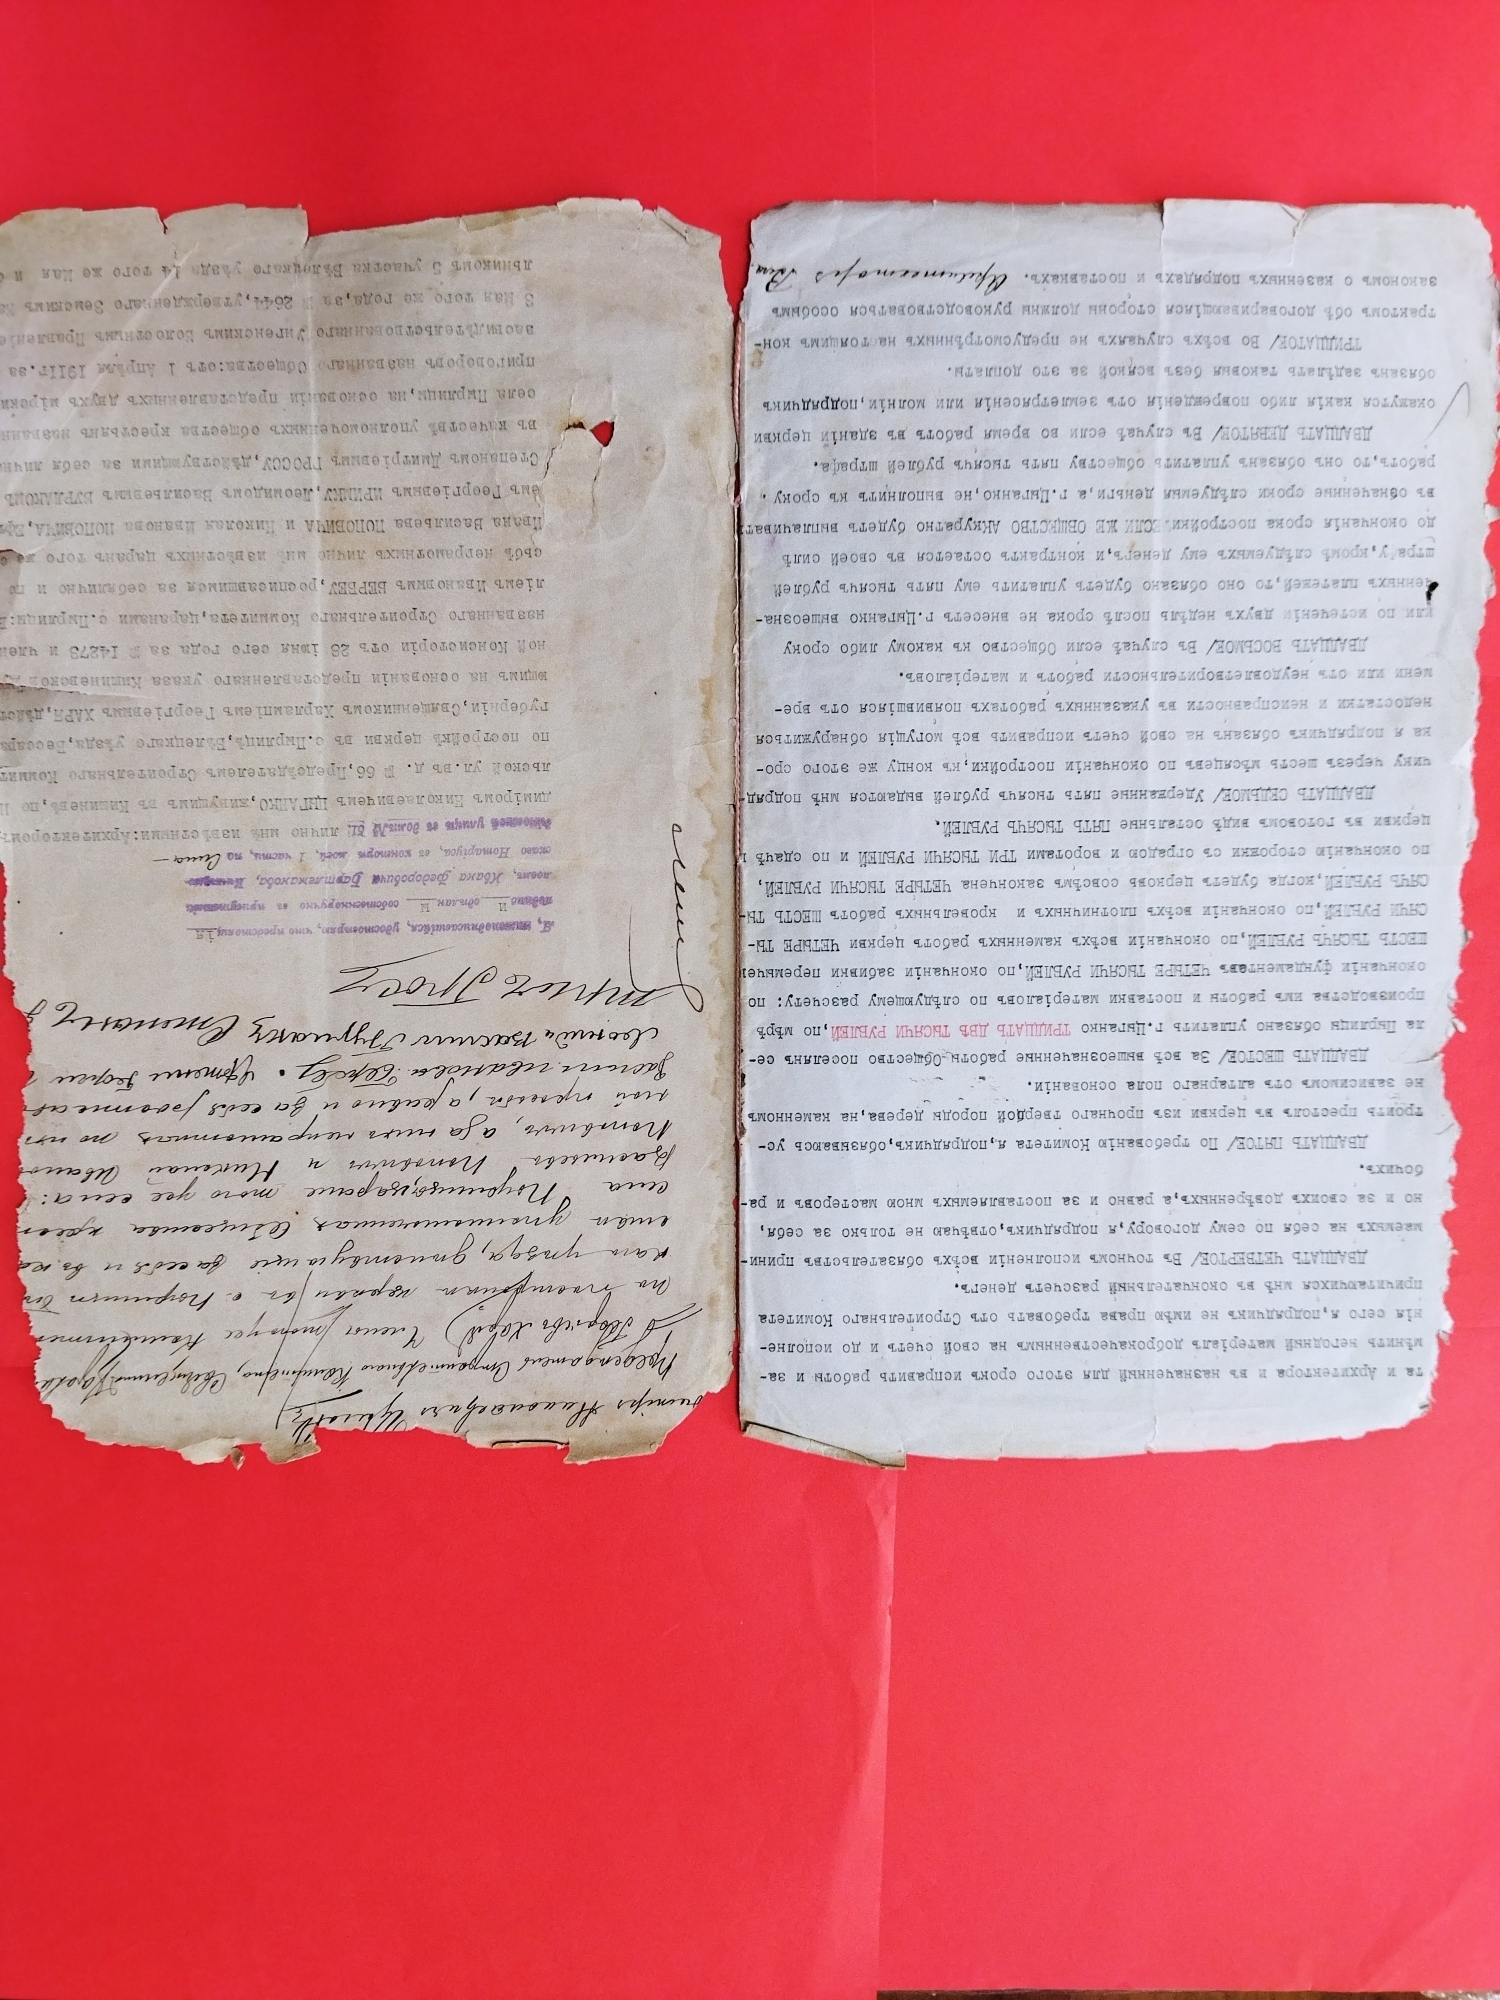 та и Архитектора и въ назначенный для этого срокъ исправить работы и за-
мѣнить негодный матеріалъ доброкачественнымъ на свой счетъ и до исполне-
нія сего я,подрядчикъ не имѣю права требовать отъ Строительнаго Комитета
причитающихся мнѣ въ окончательный разсчетъ денегъ.
ДВАДЦАТЬ ЧЕТВЕРТОЕ/ Въ точномъ исполненіи всѣхъ обязательствъ прини-
маемыхъ на себя по сему договору,я подрядчикъ,отвѣчаю не только за себя,
но и за своихъ довѣренныхъ,а равно и за поставляемыхъ мною мастеровъ и ра-
бочихъ.
ДВАДЦАТЬ ПЯТОЕ/ По требованію Комитета я,подрядчикъ,обязываюсь ус-
троить престолъ въ церкви изъ прочнаго твердой породы дерева,на каменномъ
не зависимомъ отъ алтарнаго пола основаніи.
ДВАДЦАТЬ ШЕСТОЕ/ За всѣ вышеозначенные работы Общество поселянъ се-
ла Пырлицы обязано уплатить г.Цыганко ТРИДЦАТЬ ДВѢ ТЫСЯЧИ РУБЛЕЙ,по мѣрѣ
производства имъ работы и поставки матеріаловъ по слѣдующему разсчету: по
окончаніи фундаментавъ ЧЕТЫРЕ ТЫСЯЧИ РУБЛЕЙ,по окончаніи забивки перемычекъ
ШЕСТЬ ТЫСЯЧЪ РУБЛЕЙ,по окончаніи всѣхъ каменныхъ работъ церкви ЧЕТЫРЕ ТЫ-
СЯЧИ РУБЛЕЙ,по окончаніи всѣхъ плотничныхъ и кровельныхъ работъ ШЕСТЬ ТЫ-
СЯЧЪ РУБЛЕЙ,когда будетъ церковь совсѣмъ закончена ЧЕТЫРЕ ТЫСЯЧИ РУБЛЕЙ,
по окончанію сторожки съ оградою и воротами ТРИ ТЫСЯЧИ РУБЛЕЙ и по сдачѣ
церкви въ готовомъ видѣ остальные ПЯТЬ ТЫСЯЧЪ РУБЛЕЙ.
ДВАДЦАТЬ СЕДЬМОЕ/ Удержанные пять тысячъ рублей выдаются мнѣ подряд-
чику черезъ шесть мѣсяцевъ по окончаніи постройки,къ концу же этого сро-
ка я подрядчикъ обязанъ на свой счетъ исправить всѣ могущія обнаружиться
недостатки и неисправности въ указанныхъ работахъ появившіяся отъ вре-
мени или отъ неудовлетворительности работъ и матеріаловъ.
ДВАДЦАТЬ ВОСЬМОЕ/ Въ случаѣ если Общество къ какому либо сроку
или по истеченіи двухъ недѣль послѣ срока не внесетъ г.Цыганко вышеозна-
ченныхъ платежей,то оно обязано будетъ уплатить ему пять тысячъ рублей
штрафу,кромѣ слѣдуемыхъ ему денегъ,и контрактъ остается въ своей силѣ
до окончанія срока постройки.ЕСЛИ ЖЕ ОБЩЕСТВО АККУРАТНО будетъ выплачивать
въ обзначенные сроки слѣдуемыя деньги,а г.Цыганко,не выполнитъ къ сроку
работъ,то онъ обязанъ уплатить обществу пять тысячъ рублей штрафа.
ДВАДЦАТЬ ДЕВЯТОЕ/ Въ случаѣ если во время работъ въ зданіи церкви
окажутся какія либо поврежденія отъ землетрясенія или молніи,подрядчикъ
обязанъ задѣлать таковыя безъ всякой за это доплаты.
ТРИДЦАТОЕ/ Во всѣхъ случаяхъ не предусмотрѣнныхъ настоящимъ кон-
трактомъ обѣ договаривающіяся стороны должны руководствоваться особымъ
закономъ о казенныхъ подрядахъ и поставкахъ. Архитекторъ
Николаевичъ Цыганко
Предсѣдатель Строительнаго Комитета, Священникъ
Георгіевъ Харя) Члены того же Комитета
по постройкѣ церкви въ с. Пырлицы
каго уѣзда, дѣйствующіе за себя и въ ка
уполномоченныхъ Общества крес
села Пырлица,царане того же села:
Васильевъ Поповичъ и Николай Иванов
Поповичъ, а за нихъ неграмотныхъ по ихъ
просьбѣ, а равно и за себя
Иванова Вербу. Георгі
Степанъ
Я, нижеподписавшійся, удостовѣряю, что предстоящ ія
подписи сдѣланы собственноручно въ присутствіи
моемъ, Ивана Федоровича Бартлеманова,
скаго Нотаріуса, въ конторѣ моей, 1 части, по
улицѣ въ домѣ № 61 лично мнѣ извѣстными:Архитекторомъ
диміромъ Николаевичемъ ЦЫГАНКО,живущимъ въ Кишиневѣ,по
льской ул.въ д. № 66,Предсѣдателемъ Строительнаго Комит
по постройкѣ церкви въ с.Пырлицѣ,Бѣлецкаго уѣзда,Бессара
губерніи,Священникомъ Харлампіемъ Георгіевымъ ХАРЯ,дѣйст
ющимъ на основаніи представленнаго указа Кишиневской Д
ной Консисторіи отъ 28 іюня сего года за № 14273 и член
названнаго Строительнаго Комитета,царанами с.Пырлицы:В
ліемъ Ивановымъ ВЕРБЕУ,росписавшимся за себялично и по
сьбѣ неграмотныхъ лично мнѣ извѣстныхъ царанъ того же с
Ивана Васильева ПОПОВИЧА и Николая Иванова ПОПОВИЧА,
емъ Георгіевымъ КРИМКУ,Леонидомъ Васильевымъ БУРЛАКОМЪ
Степаномъ Дмитріевымъ ГРОССУ,дѣйствующими за себя лично
въ качествѣ уполномоченныхъ общества крестьянъ названна
села Пырлицы,на основаніи представленныхъ двухъ мірски
приговоровъ названнаго Общества:отъ 1 Апрѣля 1911г.за
засвидѣтельствованнаго Унгенскимъ Волостнымъ Правленіе
3 Мая того же года,за № 2644,утвержденнаго Земскимъ На
льникомъ 5 участка Бѣлецкаго уѣзда 14 того же Мая и